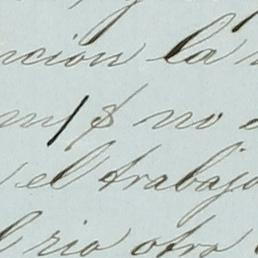 ncion la
no
el trabajo
rio otro